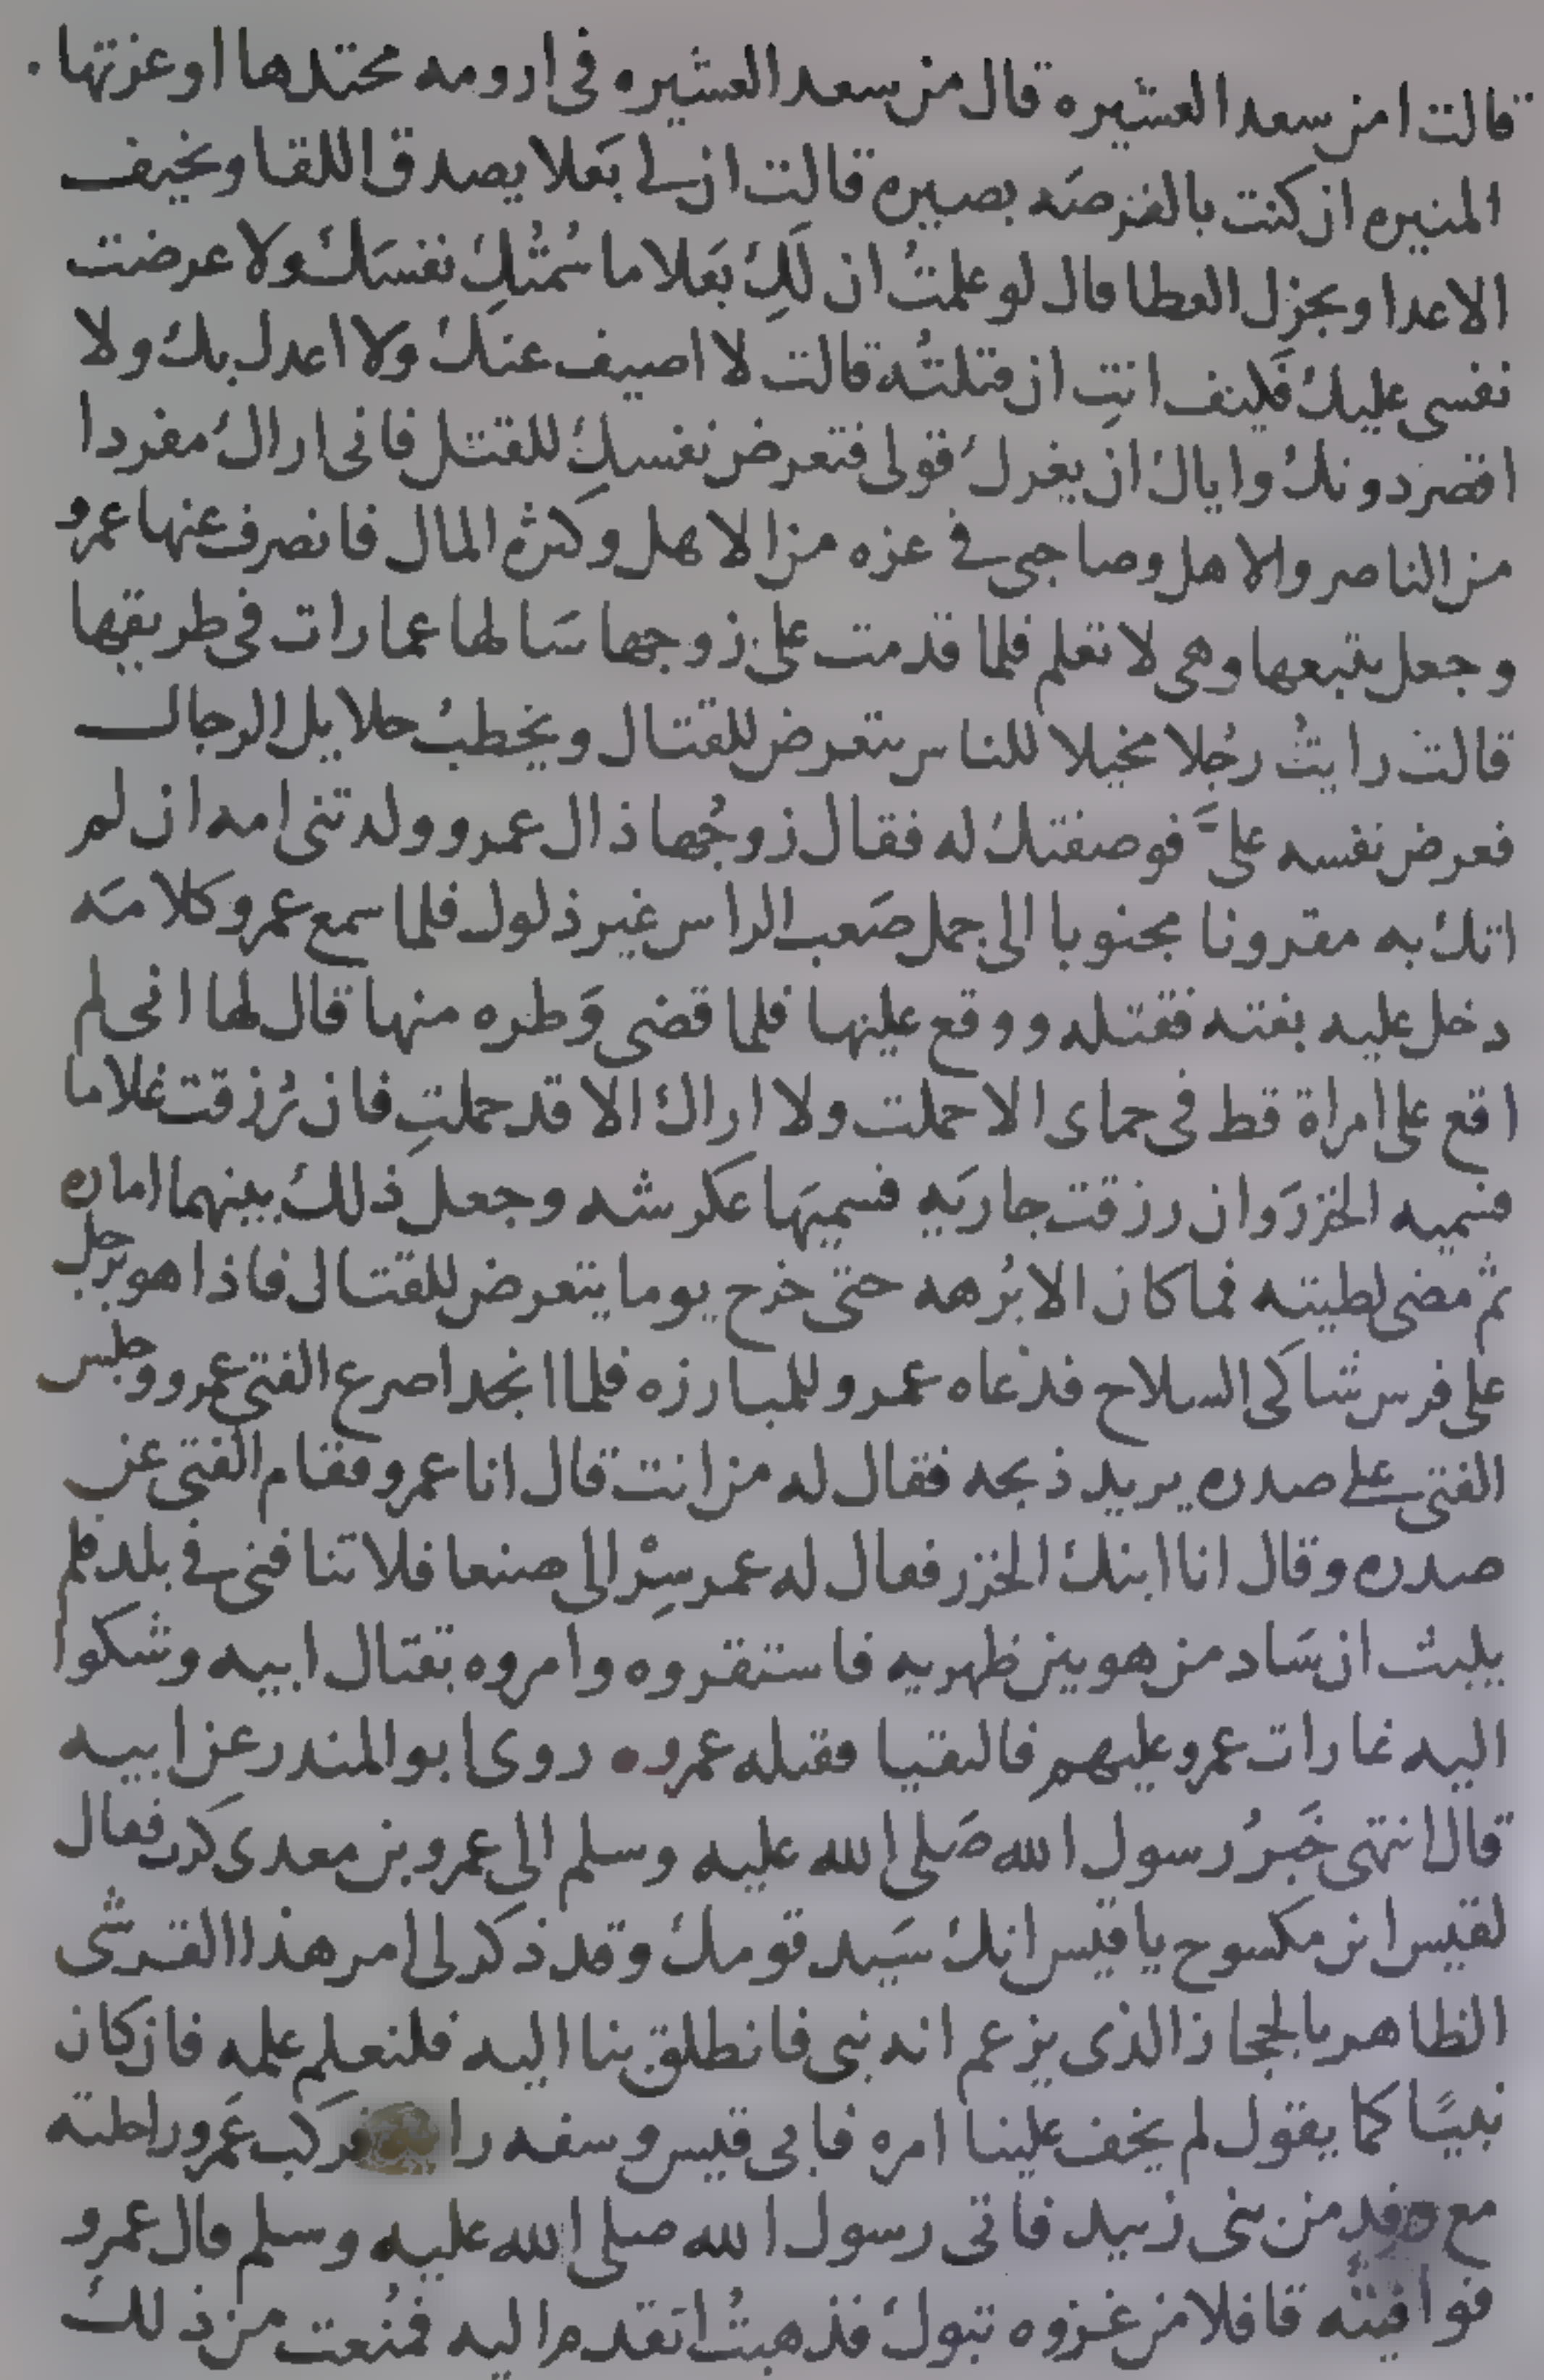 قالت امن سعد العشيره قال من سعد العشيره في ارومه محتدها اوعزتها
المنيره ان كنت بالفرصَه بصيره قالت ان لي بَعلا يصدق اللقا ويخيف
الاعدا ويجزل العطا قال لو علمتُ ان لَكِ بَعلا ما سُمتُكِ نفسَك ولا عرضت
نفسي عليك فكيف انتِ ان قتلتُه قالت لا اصيف عنك ولا اعدل بك ولا
اقصر دونك واياك ان يغرك قولي فتعرض نفسكِ للقتل فاني اراك مفردا
من الناصر والاهل وصاحبي في عزه من الاهل وكثره المال فانصرف عنها عمرو
وجعل يتبعها وهي لا تعلم فلما قدمت على زوجها سَالها عما رات في طريقها
قالت رايتُ رجُلا مخيلا للناس يتعرض للقتال ويخطبُ حلايل الرجال
فعرض نفسه عليَّ فوصفتك له فقال زوجُها ذاك عمرو ولدتني امه ان لم
اتك به مقرونا مجنوبا الى جمل صَعب الراس غير ذلول فلما سمع عمرو كلامَه
دخل عليه بغته فقتله ووقع عليها فلما قضى وَطره منها قال لها اني لم
اقع على امراة قط في حماي الا حملت ولا اراك الا قد حملتِ فان رُزقت غلاما
فسميه الخزرَ وان رزقت جاريَه فسميَها عكرشه وجعل ذلك بينهما اماره
ثم مضى لطيته فما كان الا بُرهه حتى خرج يوما يتعرض للقتال فاذا هو برجل
على فرس شاكي السلاح فدعاه عمرو للمبارزه فلما اتحدا صرع الفتى عمرو وجلس
الفتى على صدره يريد ذبحه فقال له من انت قال انا عمرو فقام الفتى عن
صدره وقال انا ابنك الخزر فقال له عمر سِرْ الى صنعا فلا تنافني في بلد فلم
يلبث ان سَاد من هو بين ظهريه فاستقروه وامروه بقتال ابيه وشكوا
اليه غارات عمرو عليهم فالتقيا فقتله عمرو ٥ روى ابو المنذر عن ابيه
قال انتهى خَبرُ رسول الله صَلى الله عليه وسلم الى عمرو بن معدي كرب فقال
لقيس ابن مكسوح يا قيس انك سَيد قومك وقد ذكر لي امر هذا القرشي
الظاهر بالحجاز الذي يزعم انه نبي فانطلق بنا اليه فلنعلم علمه فان كان
نبيًا كما يقول لم يخف علينا امره فابى قيس وسفه رايه فركب عَمرو راحلته
مع وفدٍ من بني زبيد فاتى رسول الله صلى الله عليه وسلم قال عمرو
فوافيتُه قافلا من غزوه تبوك فذهبتُ اتقدم اليه فمُنعت من ذلك